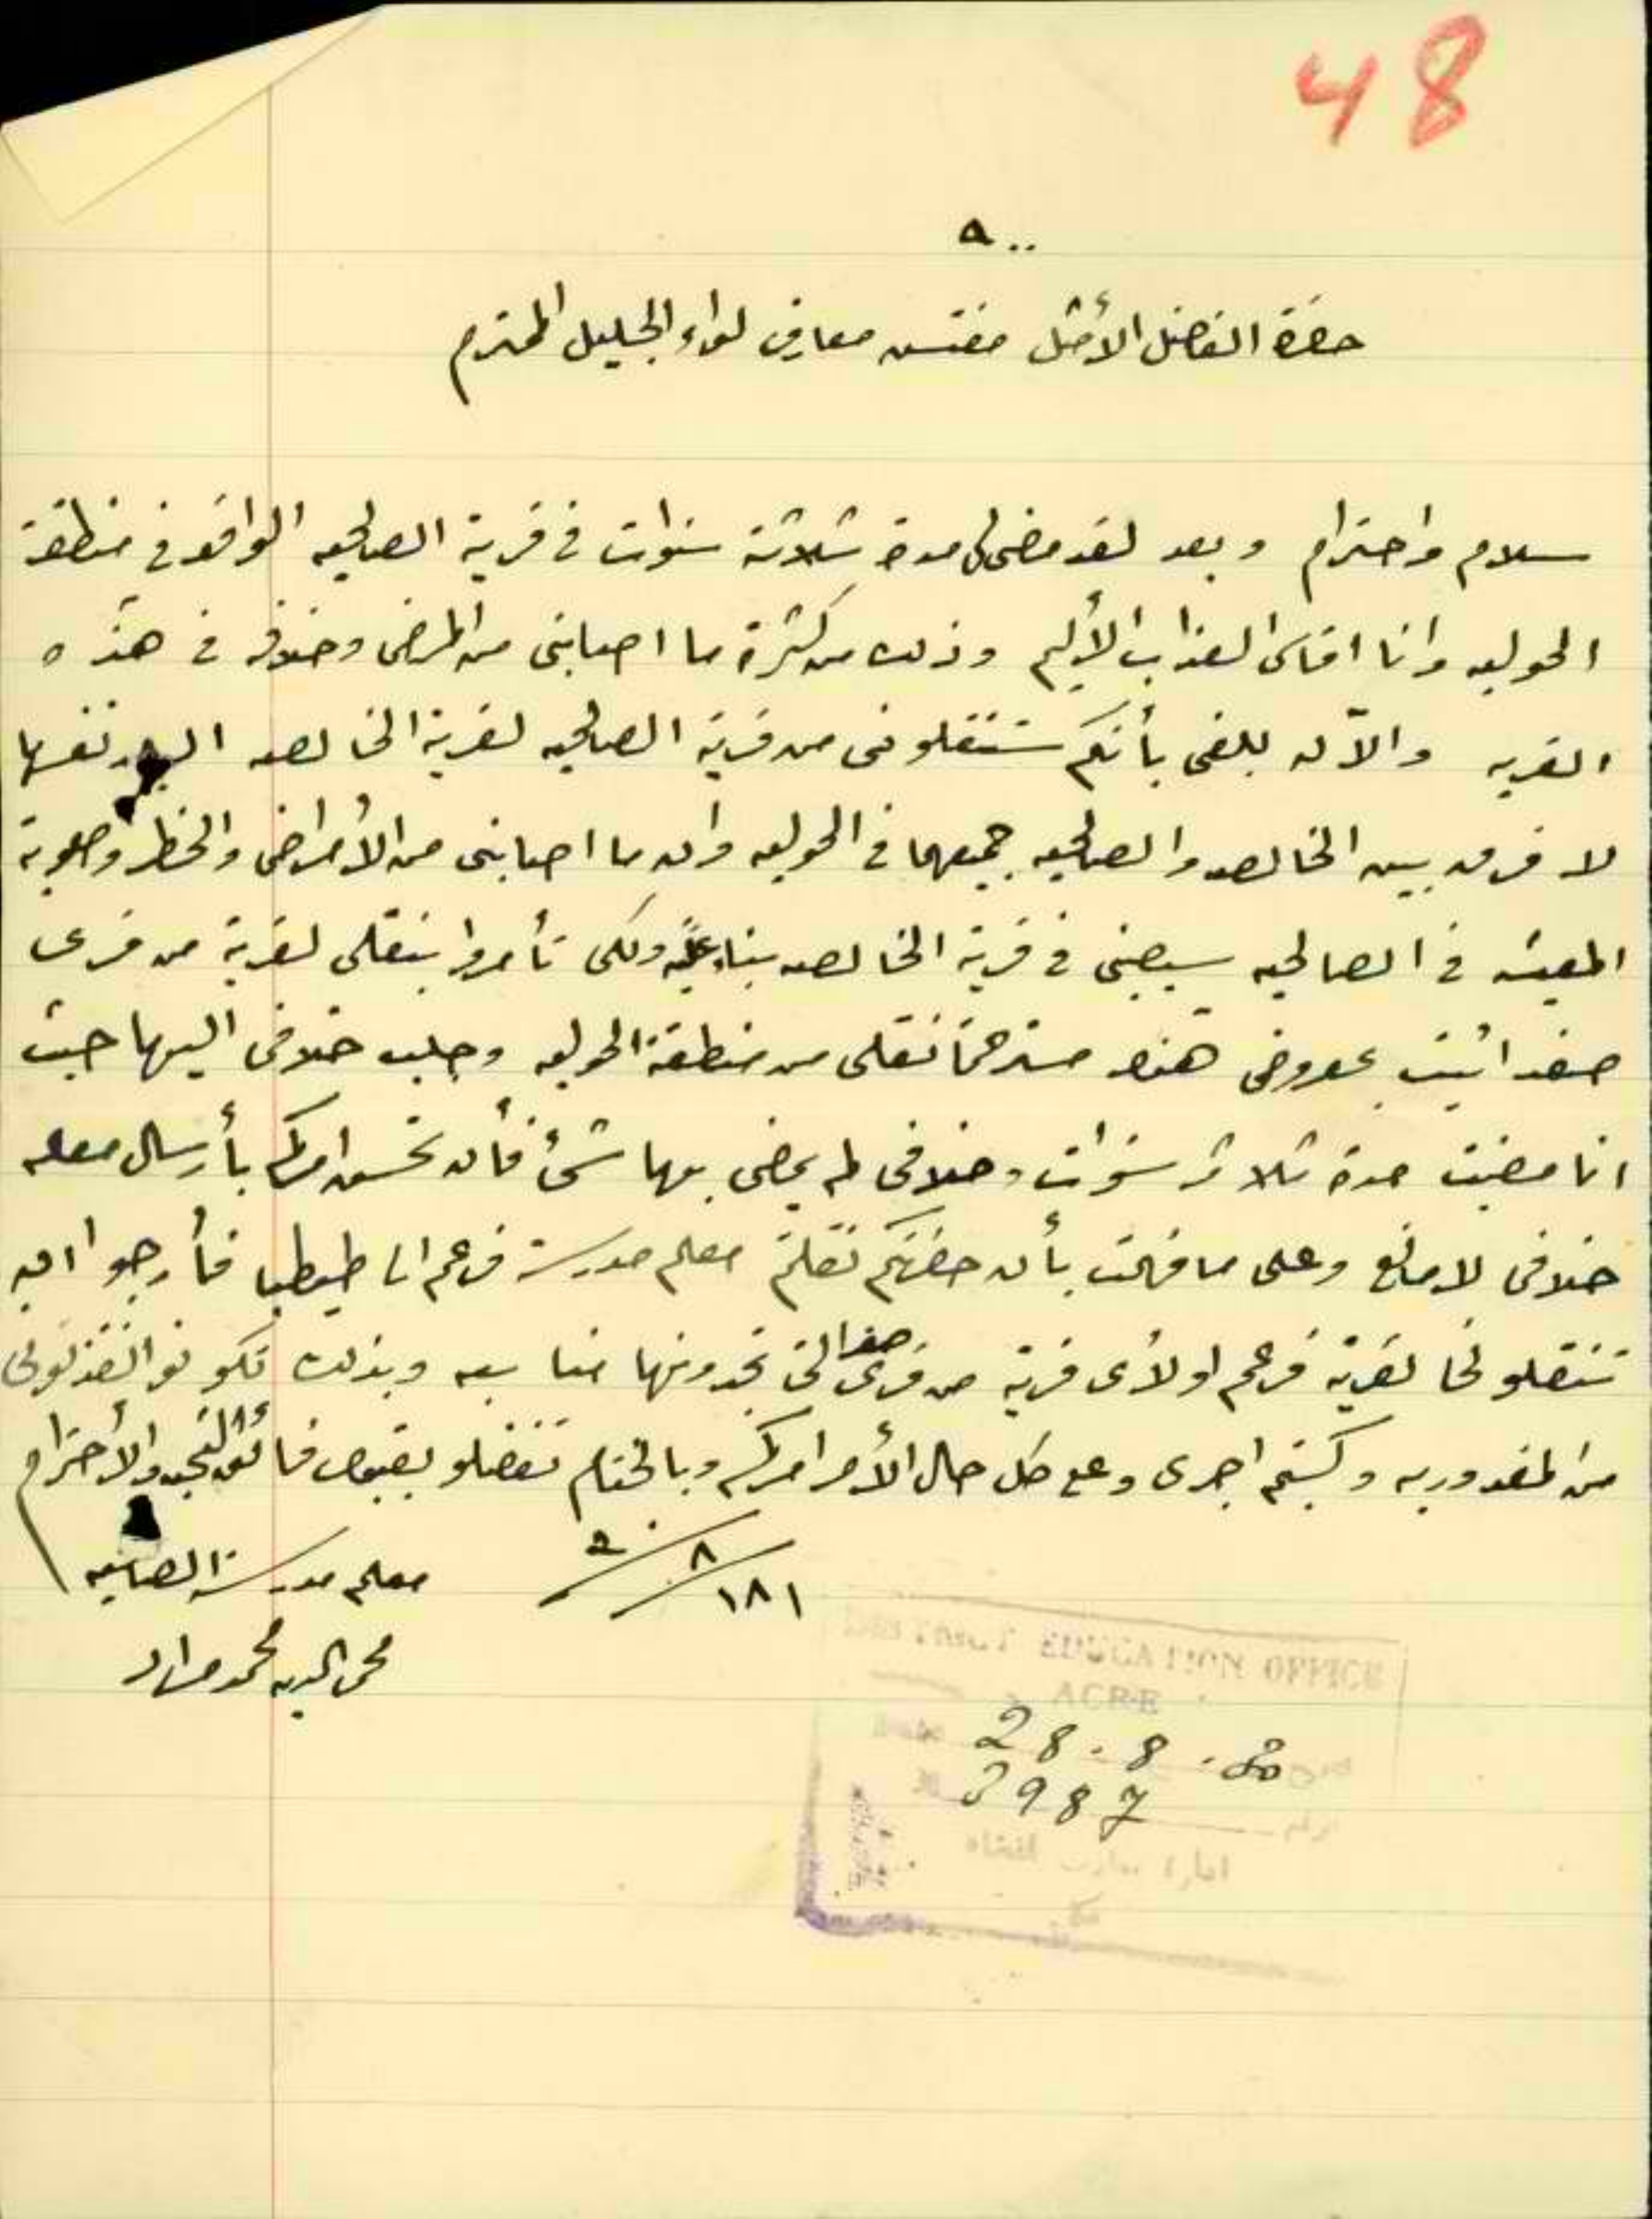 48
حضرة الفاضل الأمثل مفتش معارف لواء الجليل المحترم
سلام واحترام وبعد لقد مضى لي مدة ثلاثة سنوات في قرية الصالحيه الواقعه في منطقة
الحوليه وانا اقاسي العذاب الأليم وذلك من كثرة ما اصابني من المرض وخلافه في هذه
القريه والآن بلغني بأنكم ستنقلوني من قرية الصالحيه لقرية الخالصه نفسها
لا فرق بين الخالصه والصالحيه جميعها في الحوليه وان ما اصابني من الأمراض والخطر وصعوبة
المعيشه في الصالحيه سيصبني في قرية الخالصه بناء عليه ولكي تأمروا بنقلي لقرية من قرى
صفد اتيت بمعروضي هذا مسترحماً نقلي من منطقة الحوليه وجلب خلافي اليها حيث
انا مضيت مدة ثلاثة سنوات وخلافي لم يمضي بها شئ فأن تحسن امركم بأرسال معلم
خلافي لا مانع وعلى ما فهمت بأن حضرتكم نقلتم معلم مدرسة فرعم الى طيطبا فأرجوا ان
تنقلوني لقرية فرعم او لأي قرية من قرى صفد التي تجدونها مناسبه وبذلك تكونو انقذتوني
من المقدوريه وكسبتم اجري وعلى كل حال الأمر امركم وبالختام تفضلو بقبول فائق التحيه والأحترام
١٨١ / ٨ /
معلم مدرسة الصالحيه
محي الدين محمد مراد
DISTRICT EDUCATION OFFICE
ACRE
28.8.
2987
ادارة معارف القضاء
عكا